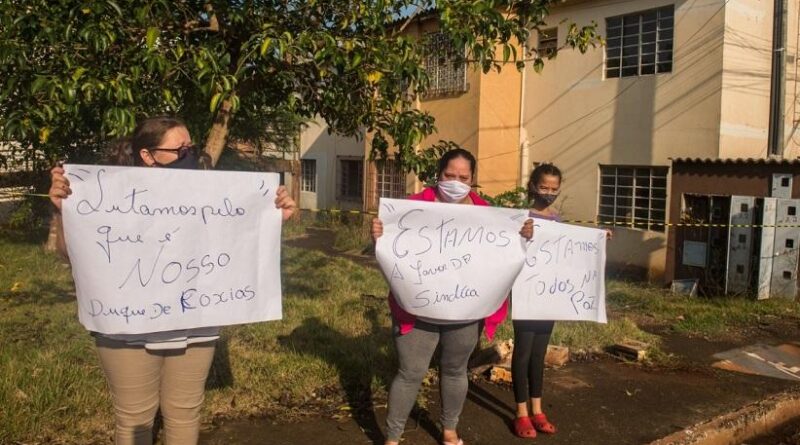 "Lutamos pelo
que é
Nosso
Duque De Caxias
"Estamos
A favor da
Sindica
Estamos
Todos na
Paz